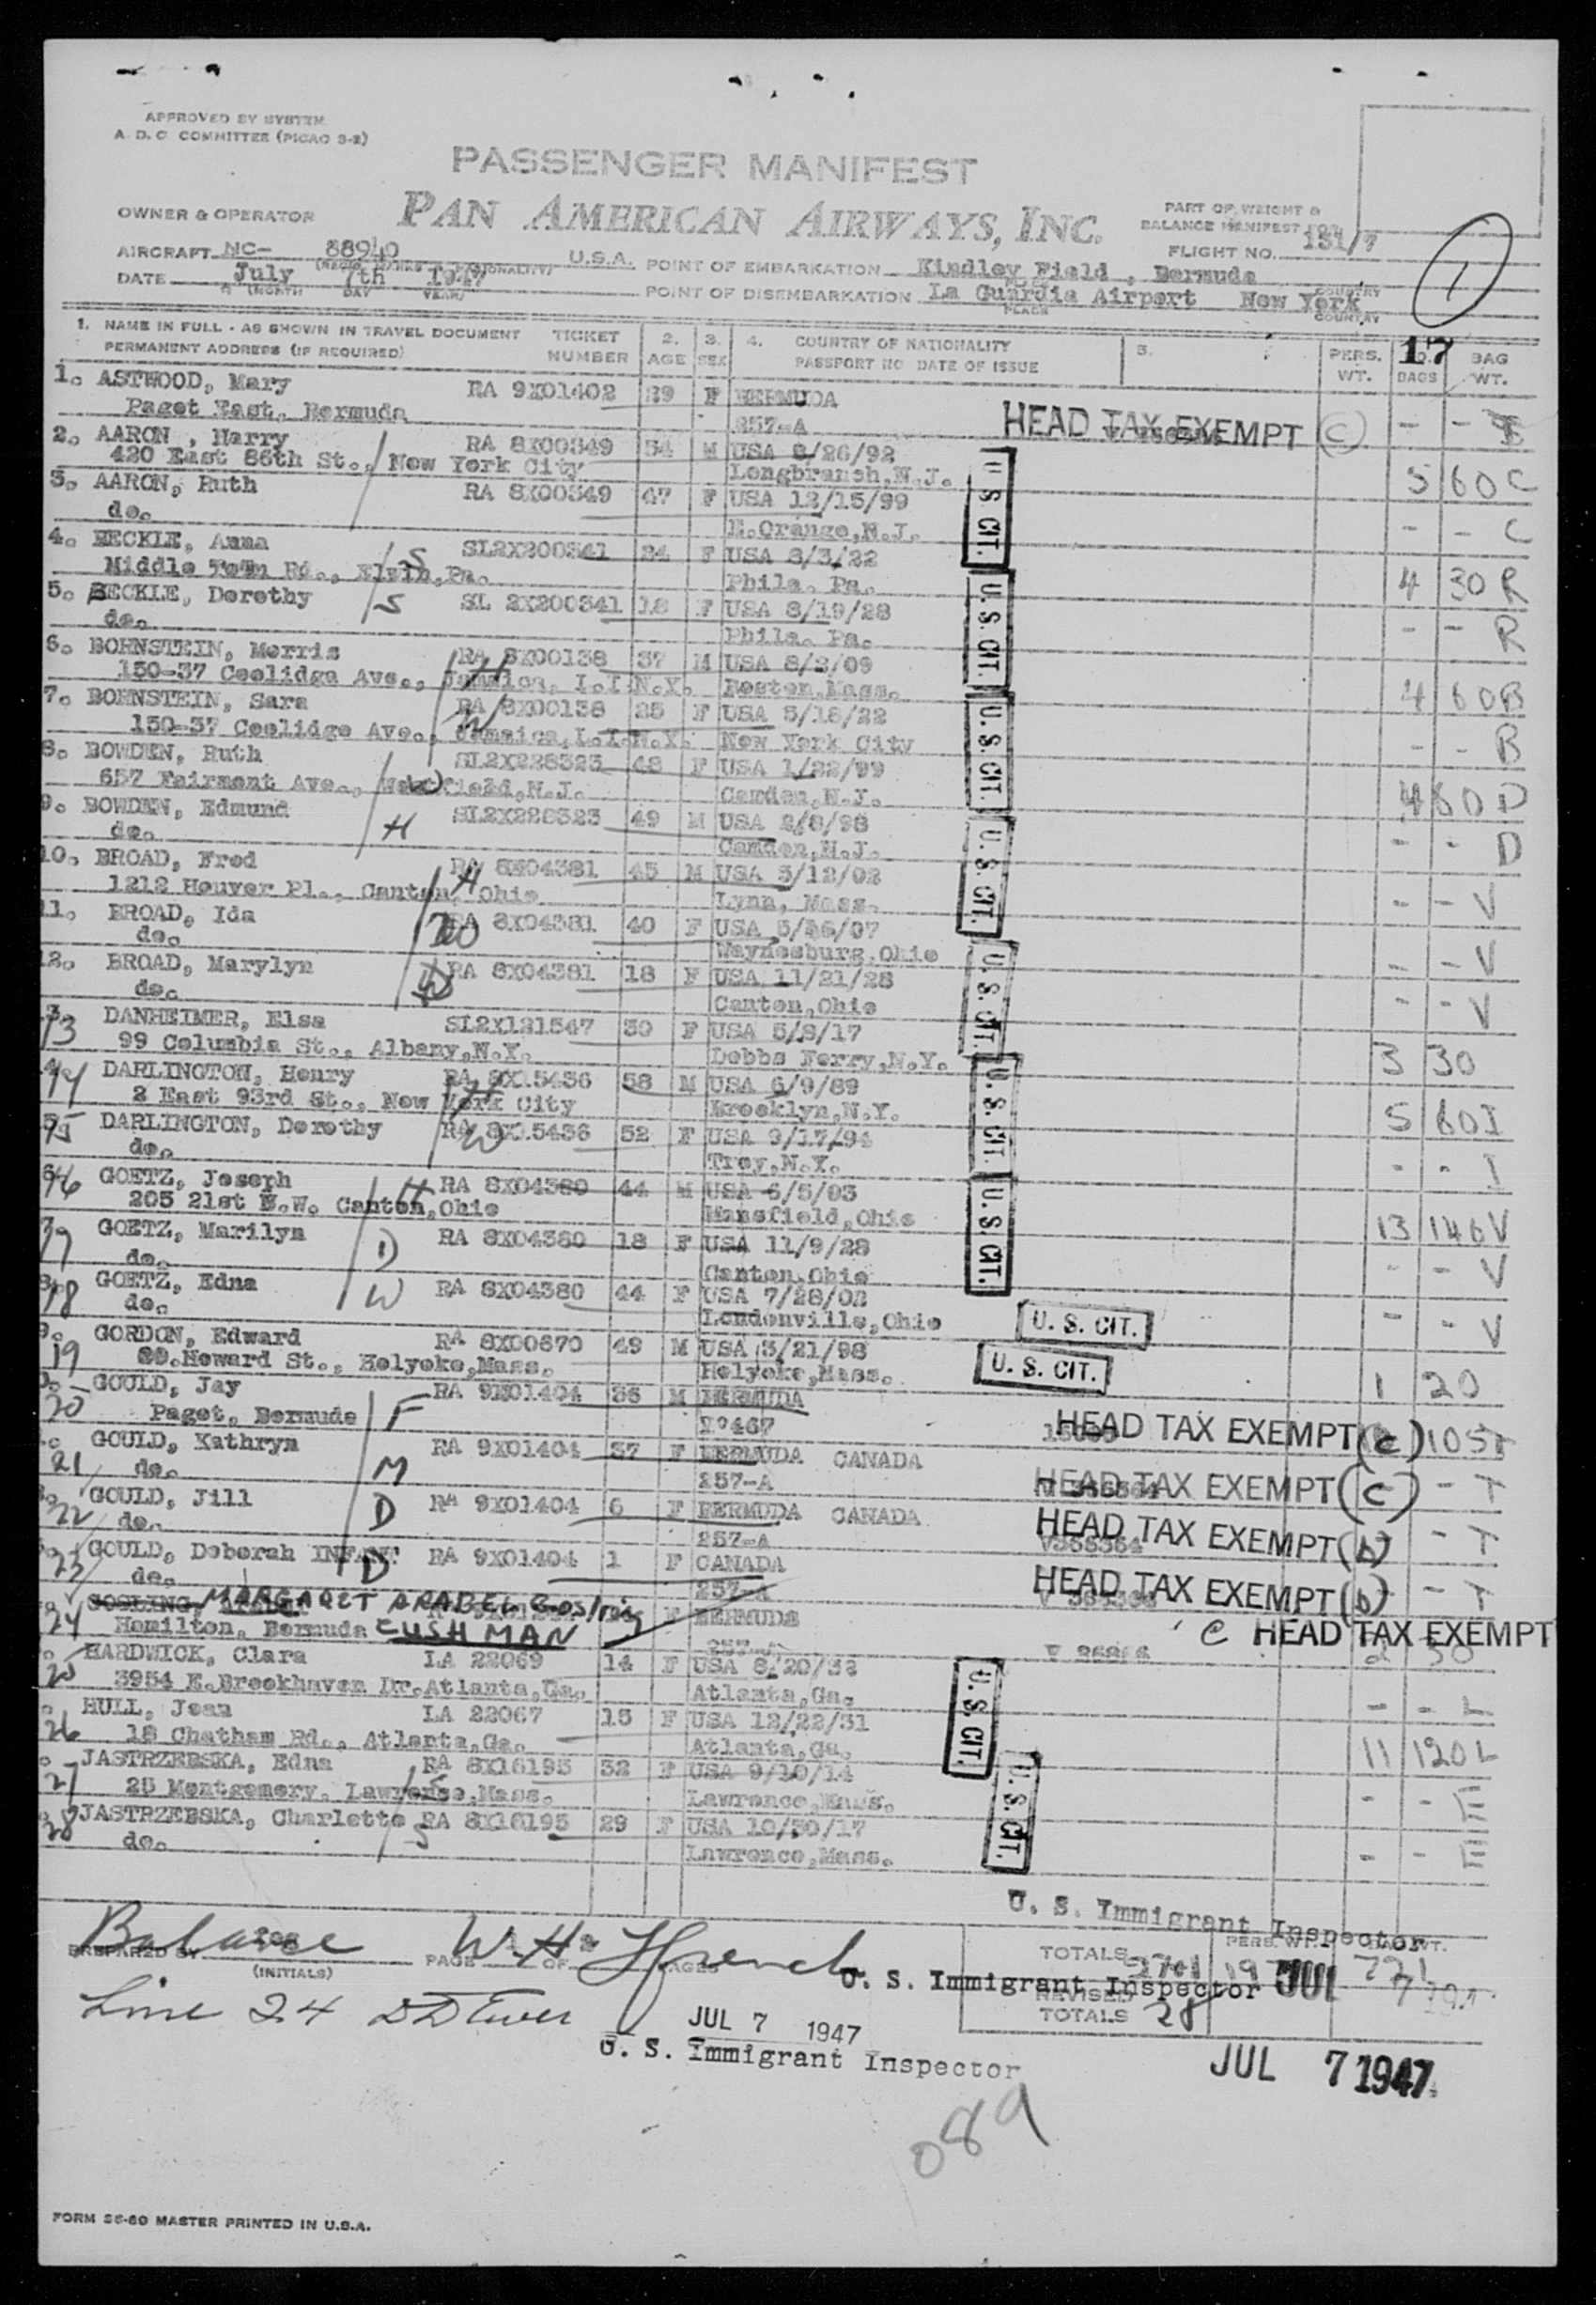 APPROVED BY SYSTEM
A. D. C. COMMITTEE (PICAO 3-2)
PASSENGER MANIFEST
OWNER & OPERATOR PAN AMERICAN AIRWAYS, INC.
PART OF WEIGHT &
BALANCE MANIFEST
AIRCRAFT NC- 88940 U.S.A. POINT OF EMBARKATION Kindley Field, Bermuda FLIGHT NO. 131/7
DATE July 7th 1947 POINT OF DISEMBARKATION La Guardia Airport New York
(MONTH) DAY YEAR PLACE COUNTRY
1
1. NAME IN FULL - AS SHOWN IN TRAVEL DOCUMENT TICKET 2. 3. 4. COUNTRY OF NATIONALITY 5. PERS. 17 BAG
PERMANENT ADDRESS (IF REQUIRED) NUMBER AGE SEX PASSPORT NO DATE OF ISSUE WT. BAGS WT.
1. ASTWOOD, Mary RA 9X01402 29 F BERMUDA
Paget East, Bermuda 257-A HEAD TAX EXEMPT (C) - -
2. AARON, Harry RA 8X00349 54 M USA 8/26/92
420 East 86th St., New York City Longbranch, N.J. 5 60 C
3. AARON, Ruth RA 8X00349 47 F USA 12/15/99
do. E.Orange, N.J. - - C
4. BECKLE, Anna S SL2X200341 24 F USA 8/3/22
Middle Town Rd., Elwin, Pa. Phila. Pa. 4 30 R
5. BECKLE, Dorothy S SL 2X200341 18 F USA 8/19/28
do. Phila. Pa. - - R
6. BORNSTEIN, Morris H RA 8X00138 37 M USA 8/2/09
150-37 Coolidge Ave., Jamaica, L.I.N.Y. Boston, Mass. 4 60 B
7. BORNSTEIN, Sara W RA 8X00138 25 F USA 5/18/22
150-37 Coolidge Ave., Jamaica, L.I.N.Y. New York City - - B
8. BOWDEN, Ruth W SL2X228323 48 F USA 1/22/99
657 Fairmont Ave., Westfield, N.J. Camden, N.J. 4 80 D
9. BOWDEN, Edmund H SL2X228323 49 M USA 2/8/98
do. Camden, N.J. - - D
10. BROAD, Fred H RA 8X04381 45 M USA 3/12/02
1212 Houver Pl., Canton, Ohio Lynn, Mass. - - V
11. BROAD, Ida W RA 8X04381 40 F USA 5/26/07
do. Waynesburg, Ohio - - V
12. BROAD, Marylyn D RA 8X04381 18 F USA 11/21/28
do. Canton, Ohio - - V
13 DANHEIMER, Elsa SL2X121547 30 F USA 5/8/17
99 Columbia St., Albany, N.Y. Dobbs Ferry, N.Y. 3 30
14 DARLINGTON, Henry H RA 8X15436 58 M USA 6/9/89
2 East 93rd St., New York City Brooklyn, N.Y. 5 60 I
15 DARLINGTON, Dorothy W RA 8X15436 52 F USA 9/17/94
do. Troy, N.Y. - - I
16 GOETZ, Joseph H RA 8X04380 44 M USA 6/5/03
205 21st N.W. Canton, Ohio Mansfield, Ohio 13 146 V
17 GOETZ, Marilyn D RA 8X04380 18 F USA 11/9/28
do. Canton, Ohio - - V
18 GOETZ, Edna W RA 8X04380 44 F USA 7/28/02
do. Loudonville, Ohio U. S. CIT. - - V
19 GORDON, Edward RA 8X00670 49 M USA 3/21/98
Howard St., Holyoke, Mass. Holyoke, Mass. U. S. CIT. 1 20
20 GOULD, Jay F RA 9X01404 36 M BERMUDA
Paget, Bermuda HEAD TAX EXEMPT (c) 105 T
21 GOULD, Kathryn M RA 9X01404 37 F BERMUDA CANADA
do. 257-A HEAD TAX EXEMPT (c) - T
22 GOULD, Jill D RA 9X01404 6 F BERMUDA CANADA
do. 257-A HEAD TAX EXEMPT (b) - T
23 GOULD, Deborah INFANT D RA 9X01404 1 F CANADA
do. 257-A HEAD TAX EXEMPT (b) - T
24 GOSLING, MARGARET ARABEL Gosling F BERMUDA
Hamilton, Bermuda CUSHMAN 257-A C HEAD TAX EXEMPT
25 HARDWICK, Clara LA 22069 14 F USA 8/20/32
3954 E.Brookhaven Dr. Atlanta, Ga. Atlanta, Ga. - - L
26 HULL, Jean LA 22067 15 F USA 12/22/31
18 Chatham Rd., Atlanta, Ga. Atlanta, Ga. 11 120 L
27 JASTRZEBSKA, Edna S RA 8X16195 32 F USA 9/10/14
25 Montgomery, Lawrence, Mass. Lawrence, Mass. - - E
28 JASTRZEBSKA, Charlotte S RA 8X16195 29 F USA 10/30/17
do. Lawrence, Mass. - - E
U. S. CIT.
U. S. CIT.
U. S. CIT.
U. S. CIT.
U. S. CIT.
U. S. CIT.
U. S. CIT.
U. S. CIT.
U. S. CIT.
U. S. Immigrant Inspector
Balance W. H. French
PREPARED BY (INITIALS) PAGE OF PAGES
TOTALS PERS. WT.
U. S. Immigrant Inspector JUL 7
REVISED
TOTALS 28
Line 24
JUL 7 1947
U. S. Immigrant Inspector
JUL 7 1947
089
FORM 36-60 MASTER PRINTED IN U.S.A.